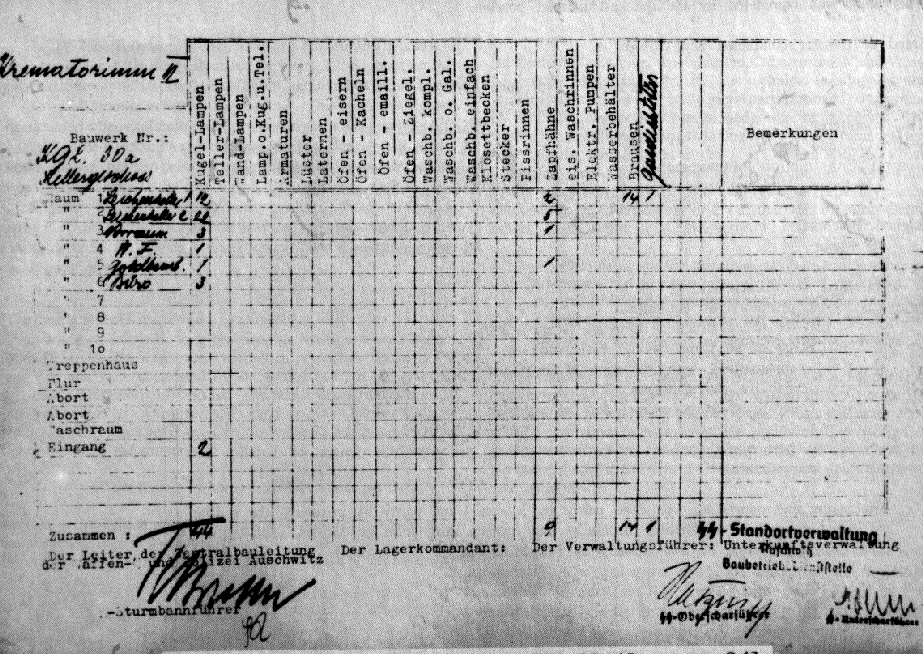 Krematorium
Bauwerk Nr.:
KGL. 30a
Kellergeschoss
Kugel-Lampen
Teller-Lampen
Wand-Lampen
Lamp.o.Kug.u.Tel.
Armaturen
Lüster
Laternen
Öfen - eisern
Öfen - Kacheln
Öfen - emaill.
Öfen - Ziegel.
Waschb. kompl.
Waschb. o. Gal.
Waschb. einfach
Klosettbecken
Stecker
Pissrinnen
Zapfhähne
Eis. Waschrinnen
Elektr. Pumpen
Wasserbehälter
Brausen
Bemerkungen
Raum 1 Leichenkeller 1 12 14 1
" 2 Leichenkeller 2 5
" 3 Vorraum 3 1
" 4 1
" 5 1 1
" 6 Büro 3
" 7
" 8
" 9
" 10
Treppenhaus
Flur
Abort
Abort
Waschraum
Eingang 2
Zusammen : 44 9 14 1
Der Leiter der Zentralbauleitung
der Waffen- und Polizei Auschwitz
Der Lagerkommandant:
Der Verwaltungsführer: Unterkunftsverwaltung
SS-Standortverwaltung
Auschwitz
Baubetriebsdienststelle
-Sturmbannführer
SS-Oberscharführer
SS-Unterscharführer